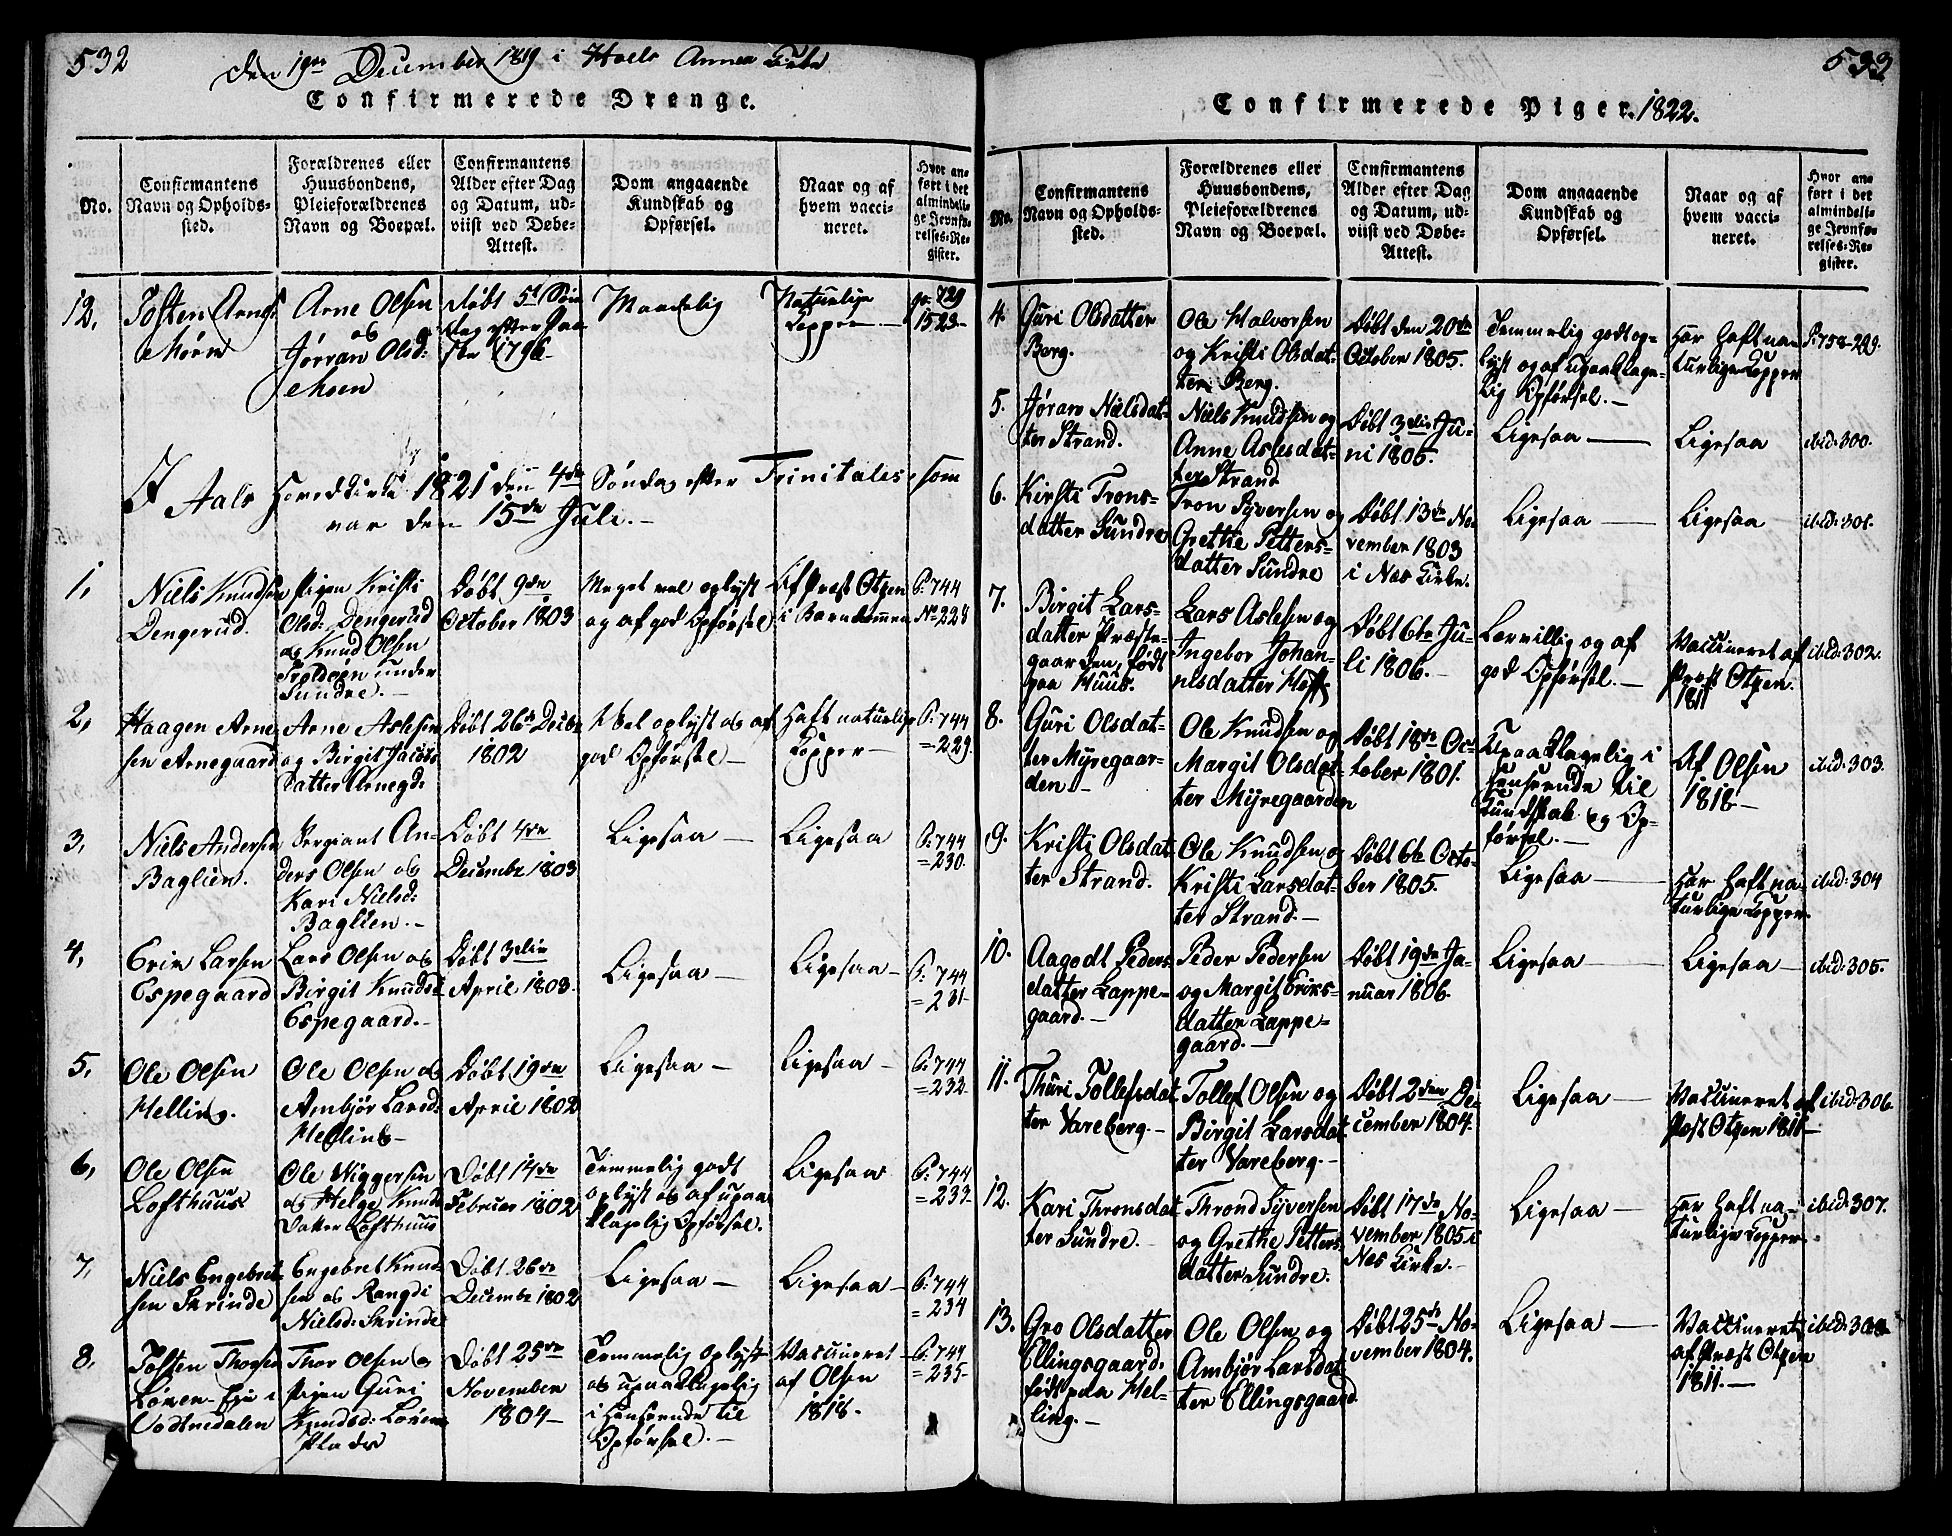 532
den 19de December 1819 i Hoels Annex Kirke
Confirmerede Drenge.
No.
Confirmantens
Navn og Opholds-
sted.
Forældrenes eller
Huusbondens,
Pleieforældrenes
Navn og Boepæl.
Confirmantens
Alder efter Dag
og Datum, ud-
viist ved Døbe-
Attest.
Dom angaaende
Kundskab og
Opførsel.
Naar og af
hvem vacci-
neret.
Hvor an-
ført i det
almindeli-
ge Jevnfø-
relses-Re-
gister.
12.
Tosten Arnes:
Moen
Arne Olsen
og
Jørran Olsd:
Moen
døbt 5t Søn
dag efter Paa
ske 1796.
Maadelig
Naturlige
Kopper.
pa: 729
1523
I Aals Hovedkirke 1821 den 4de Søndag efter Trinitates, som
var den 15de Juli.
1,
Niels Knudsen
Dengerud.
Pigen Kristi
Olsd: Dengerud
og Knud Olsen
Troldøen under
Sundre.
Døbt 9de
October 1803
Meget vel oplyst
og af god Opførsel
Af Præst Otzen
i Barndommen
P: 744
No 228
2,
Haagen Arne
sen Arnegaard
Arne Aslesen
og Birgit Jacobs
Datter Arnegd:
Døbt 26de Decbr
1802
Vel oplyst og af
god Opførsel
Haft naturlige
Kopper
P: 744
=229.
3,
Niels Andersen
Baglien.
Sergeant An-
ders Olsen og
Kari Nielsd:
Baglien.
Døbt 4de
Decembr 1803
Ligesaa
Ligesaa
P: 744
=230.
4,
Erik Larsen
Espegaard
Lars Olsen og
Birgit Knudsd
Espegaard.
Døbt 3die
April 1803.
Ligesaa
Ligesaa
P: 744
=231.
5,
Ole Olsen
Helling.
Ole Olsen og
Ambjør Larsd:
Helling
Døbt 19de
April 1802
Ligesaa
Ligesaa
P: 744
=232.
6,
Ole Olsen
Lofthuus
Ole Wiggersen
og Helge Knuds
Datter Lofthuus
Døbt 14de
Februar 1802
Temmelig godt
oplyst og af upaa
klagelig Opførsel.
Ligesaa
P: 744
=233.
7,
Niels Engebret
sen Skrinde
Engebret Knud
sen og Rangdi
Nielsd: Skrinde
Døbt 26de
Decembr 1802
Ligesaa
Ligesaa
P: 744
=234
8,
Tosten Thorsen
Lønen Eje i
Vodtnedalen
Thor Olsen og
Pigen Guri
Knudsd: Lønen
Døbt 25de
November
1804
Temmelig oplyst
og upaaklagelig
i Henseende til
Opførsel.
Vaccineret
af Olsen
1818.
P: 744
=235.
533
Confirmerede Piger. 1822.
No.
Confirmantens
Navn og Opholds-
sted.
Forældrenes eller
Huusbondens,
Pleieforældrenes
Navn og Boepæl.
Confirmantens
Alder efter Dag
og Datum, ud-
viist ved Døbe-
Attest.
Dom angaaende
Kundskab og
Opførsel.
Naar og af
hvem vacci-
neret.
Hvor an-
ført i det
almindeli-
ge Jevnfø-
relses-Re-
gister.
4.
Guri Olsdatter
Berg.
Ole Halvorsen
og Kristi Olsdat-
ter Berg.
Døbt den 20de
October 1805.
Temmelig godt op-
lyst og af upaaklage-
lig Opførsel.
Har haft na-
turlige Kopper
P: 758-299.
5.
Jøran Nielsdat-
ter Strand.
Niels Knudsen og
Anne Aslesdat-
ter Strand
Døbt 3die Ju-
ni 1805.
Ligesaa
Ligesaa
ibid: 300.
6.
Kirsti Trons-
datter Sundre
Tron Syversen og
Grethe Petters-
datter Sundre
Døbt 13de No-
vember 1803
i Næs Kirke.
Ligesaa
Ligesaa
ibid: 301.
7.
Birgit Lars-
datter Præste-
gaarden, født
paa Huus.
Lars Aslesen og
Ingebor Johan-
nesdatter Hoff
Døbt 6te Ju-
li 1806.
Lærvillig og af
god Opførsel.
Vaccineret af
Præst Otzen.
1811
ibid: 302.
8.
Guri Olsdat-
ter Myregaar-
den
Ole Knudsen og
Margit Olsdat-
ter Myregaarden
Døbt 18de Oc-
tober 1801.
Upaaklagelig i
Henseende til
Kundskab og Op-
førsel.
Af Olsen
1818
ibid: 303.
9.
Kristi Olsdat
ter Strand.
Ole Knudsen og
Kristi Larsdat-
ter Strand.
Døbt 6te Octo-
ber 1805.
Ligesaa
Har haft na-
turlige Kopper.
ibid: 304
10.
Aagodt Peders-
datter Lappe-
gaard.
Peder Pedersen
og Margit Eriks-
datter Lappe-
gaard.
Døbt 19de Ja-
nuar 1806.
Ligesaa
Ligesaa
ibid: 305.
11.
Thuri Tollefsdat
ter Vareberg.
Tollef Olsen og
Birgit Larsdat
ter Vareberg.
Døbt 2den De-
cember 1804.
Ligesaa
Vaccineret af
Præst Otzen 1811
ibid: 306.
12.
Kari Thronsdat
ter Sundre.
Thrond Syversen
og Grethe Petters
datter Sundre.
Døbt 17de No-
vember 1805 i
Næs Kirke.
Ligesaa
Har haft na-
turlige Kopper
ibid: 307.
13.
Gro Olsdatter
Ellingsgaard.
født paa Hel-
ling.
Ole Olsen og
Ambjør Larsdat
ter Ellingsgaard
Døbt 25de No-
vember 1804.
Ligesaa
Vaccineret
af Præst Otzen
1811.
ibid: 308